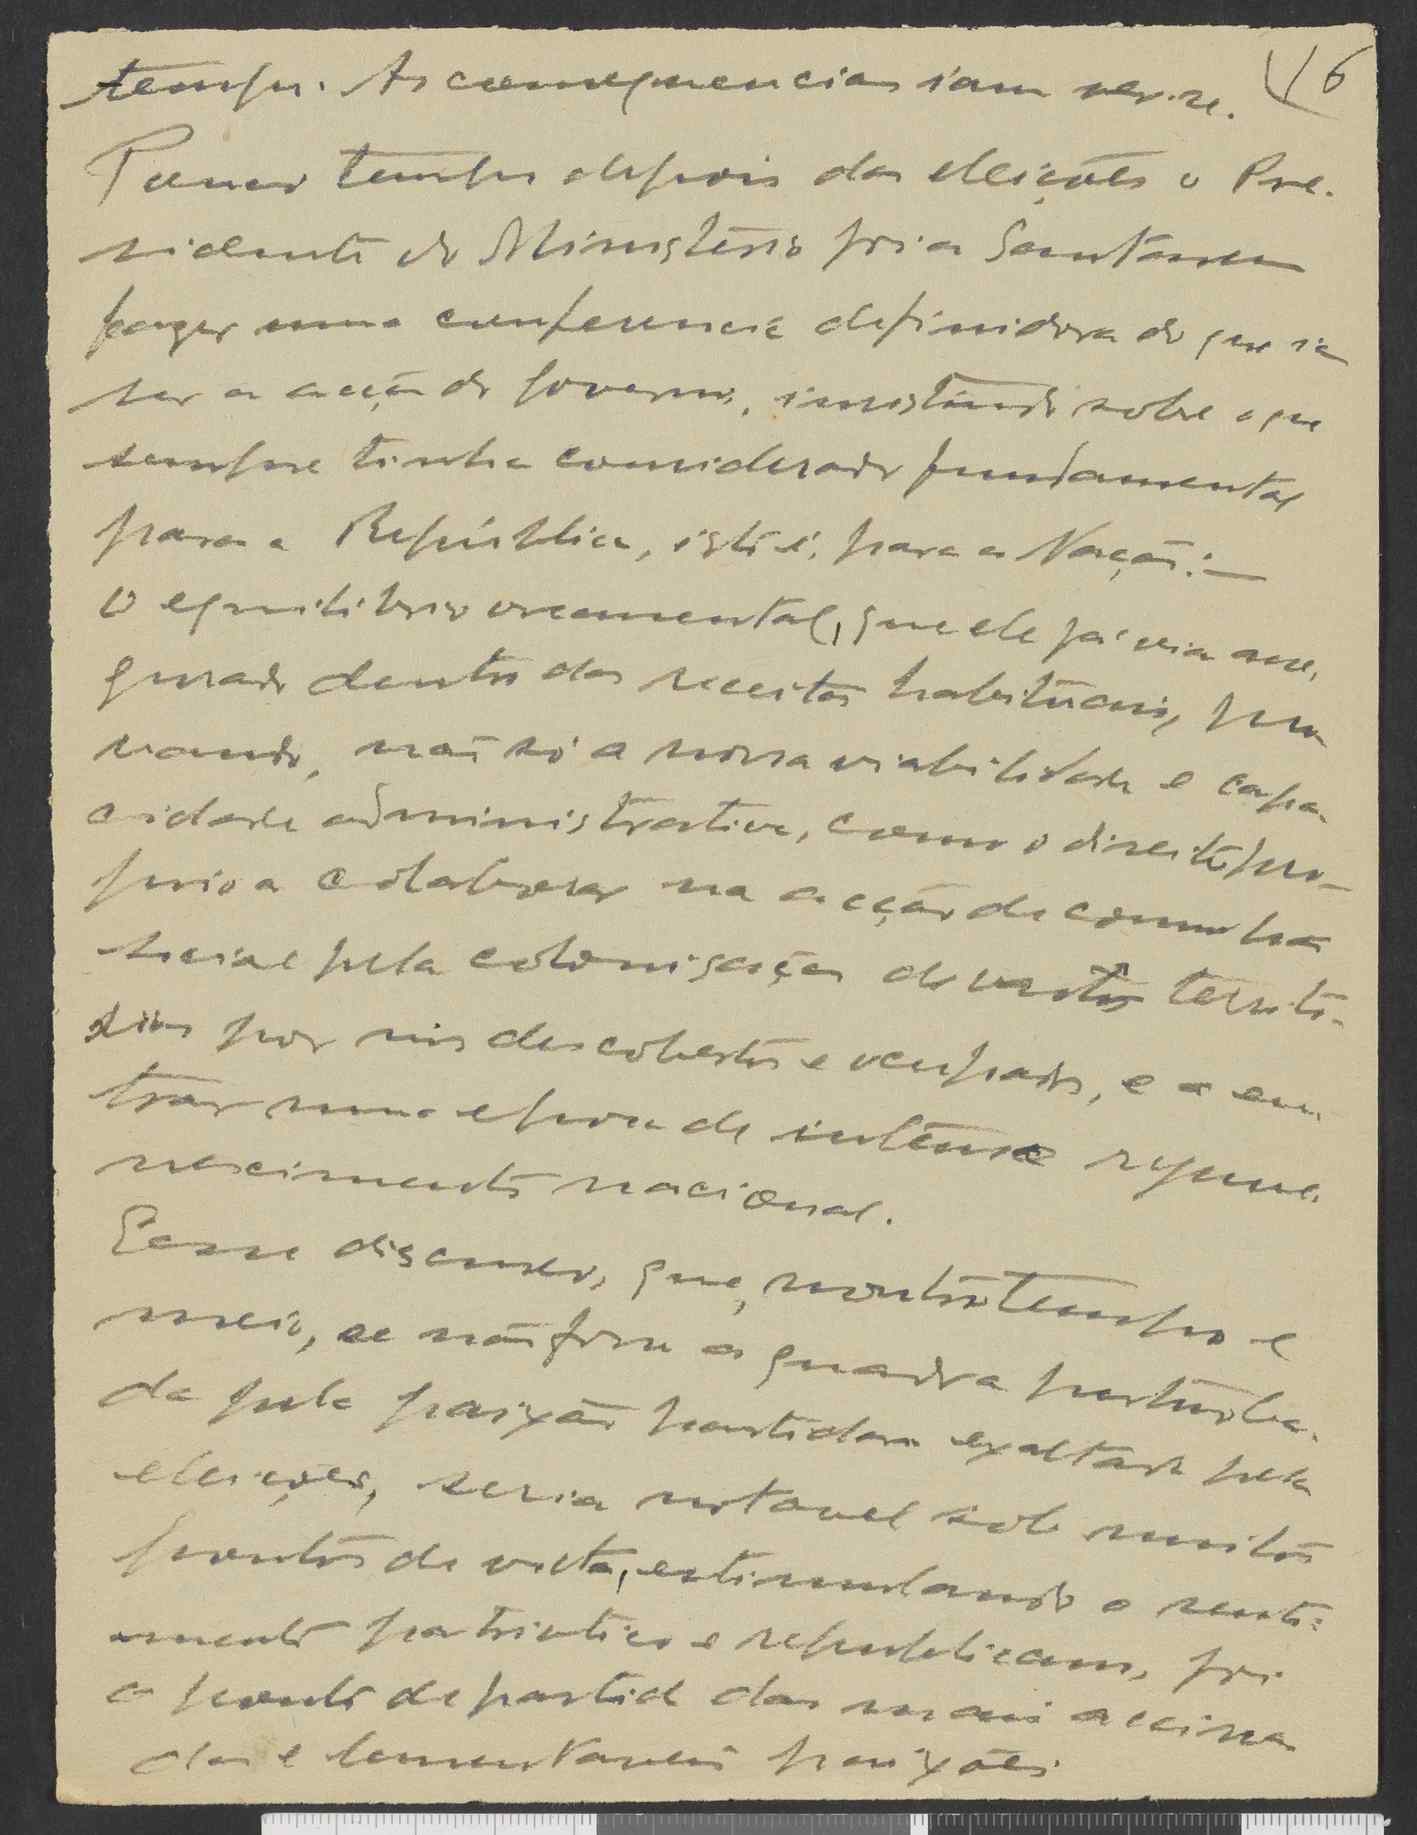 tempo. As consequencias iam ver-se. 16
Pouco tempo depois das eleições o Pre-
sidente do Ministério foi a Santarem
fazer uma conferencia definidora do que ia
ser a acção do governo, insistindo sobre o que
sempre tinha considerado fundamental
para a República, isto é, para a Nação:—
O equilibrio orcamental, que ele já via asse-
gurado dentro das receitas habituais, pro-
vando, não só a nossa viabilidade e capa-
cidade administrativa, como o direito pro-
prio a colaborar na acção de comunhão
social pela colonisação de vastos territó-
rios por nós descobertos e ocupados, e a en-
trar numa epoca de intenso
nascimento nacional.
Esse discurso, que, noutro tempo e
meio, se não fora a quadra perturba-
da pela paixão partidaria exaltada pela
eleições, seria notavel sob muitos
pontos de vista, estimulando o senti-
mento patriotico e republicano, foi
o ponto de partida das mais accirra-
das e lamentaveis paixões